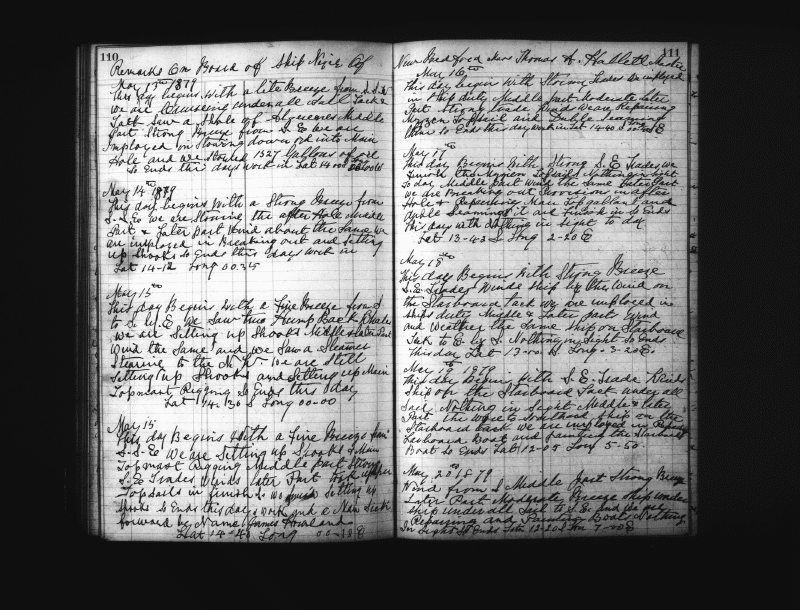 110
Remarks On Board of Ship Niger Of
May 13th 1879
this day begins with a lite Breeze from S.S.E
We are Cruiseing under all Sail Tack &
Tack Saw a Shole of Middle
Part Strong Breeze from S E We are
Imployed in Stowing down oil into Main
Hole and we Stowed 1527 Gallons of oil
So Ends this days work in Lat 14 00
May 14th 1879
This day begins With a Strong Breeze from
S-S E We are Stowing the after Hole Middle
Part & Later Part Wind about the Same We
are imployed in Breaking out and Setting
up Shooks So Ends this days Work in
Lat 14-12 Long 00.35
May 15th
this day Begins With a fine Breeze from S.
to S. W E We Saw two Hump Back Whales
We are Setting up Shooks Middle & Later Part
Wind the Same and We Saw a Steamer
Stearing to the N. W. We are Still
Setting up Shooks and Setting up Main
Topmast Rigging So Ends this day
Lat 14.30 S Long 00-00
May 15
this day Begins With a fine Breeze from
S-S-E We are Setting up Shooks & Main
Topmast Rigging Middle Part Strong
S.E Trades Winds later Part took
Topsails in Setting up
Shooks So Ends this days work and a Man Sick
forward by Name James Rowland
Lat 14-40 Long 00-18 E
111
New Bedford Mass Thomas A. Hallett Master
May 16th
this day begin With Strong Trades We imployed
in Ship duty Middle part Moderate Later
Part Strong Trades and We are Repairing
Mizzen Topsail and Dubble Seaming
So Ends this day Work in Lat 14-40 S
May 17th
This day Begins With Strong S. E Trades We
finish the Mizzen Topsail Nothing in Sight
To day Middle part Wind the Same Later Part
we are Breaking out Provisions in after
Hole & Repairing Main Topgallant and
duble Seaming it and finish it So Ends
this day With Nothing in Sight to day
Lat 13-43 S Long 2-20 E
May 18th
this day Begins With Strong Breeze
S.E Trades Winds Ship by the Wind on
the Starboard Tack We are imployed in
Ships duty Middle & Later part Wind
and Weather the Same Ship on Starboard
Tack to E by S. Nothing in Sight So Ends
this day Lat 13-00 S. Long. 3-20 E.
May 19th 1879
this day Begins With S. E. Trade Winds
Ship on the Starboard Tack under all
Sail Nothing in Sight Middle & later
Part the Wind Ship on the
Starboard tack we are imployed in Repairing
Larboard Boat and painting the Starboard
Boat So Ends Lat 12-05 Long 5-50.
May 20th 1879
Wind from S Middle Part Strong Breeze
Later Part Moderate Breeze Ship under
Ship under all Sail to S. E. and We are
Repairing and Painting Boats Nothing
In Sight So Ends Lat 12-20 S Lon 7-00 E